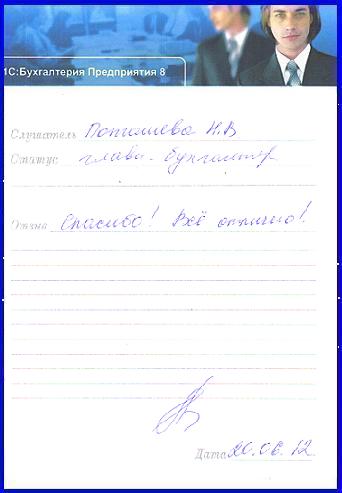 1С:Бухгалтерия Предприятия 8
Слушатель
Статус главн. бухгалтер
Отзыв Спасибо! Всё отлично!
Дата 20.06.12